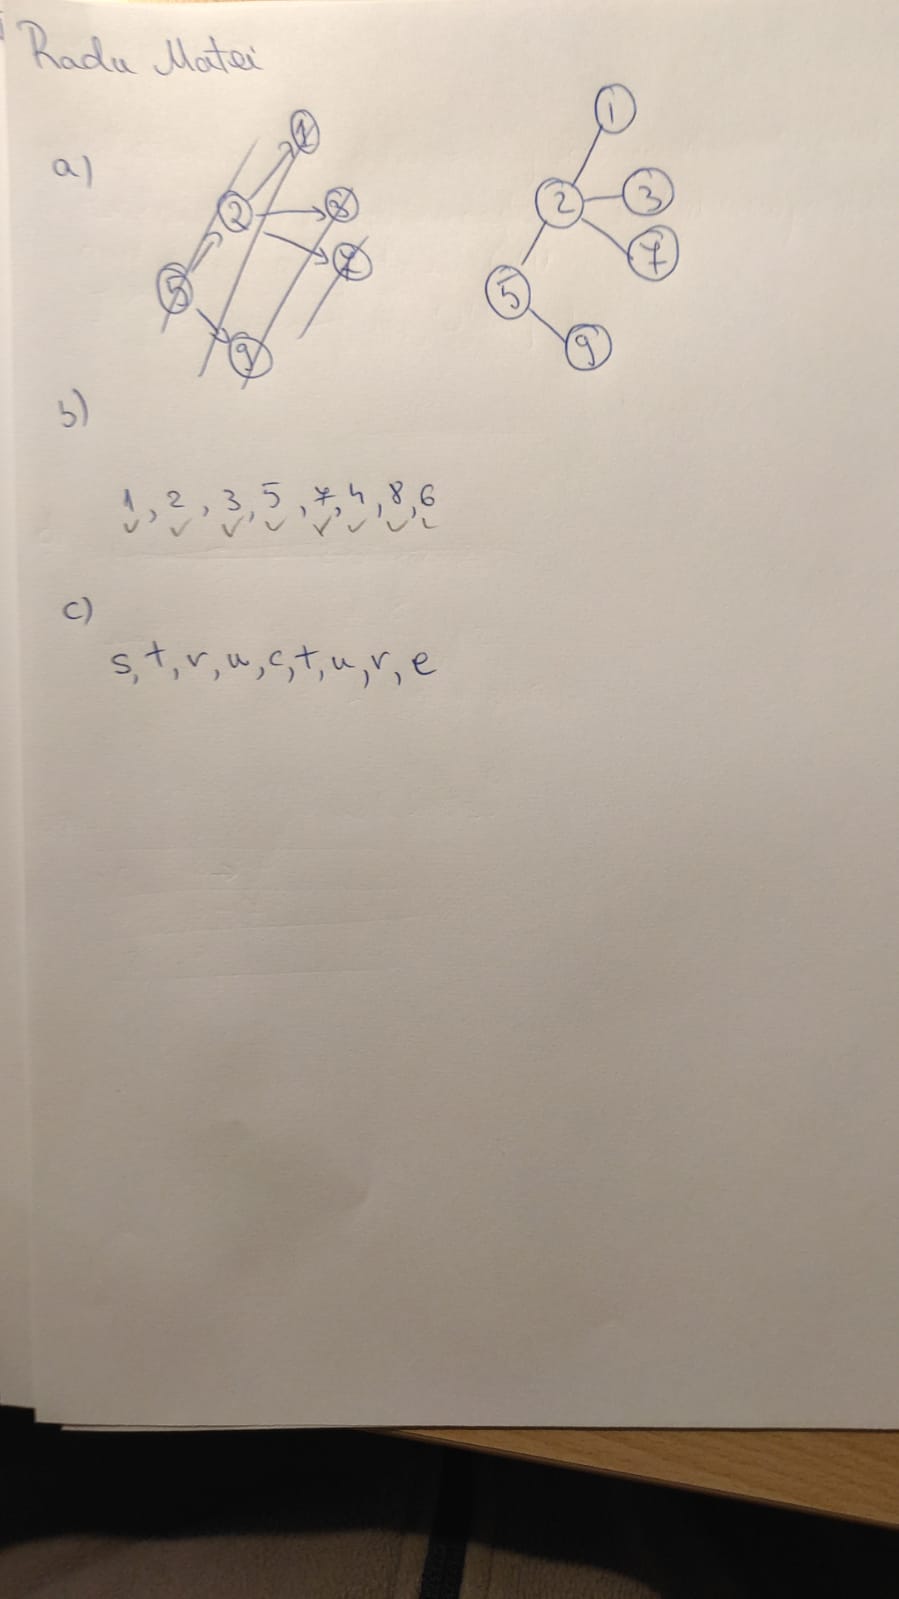 Radu Matei
a)
1
2
3
7
5
9
1
2
3
7
5
9
b)
1, 2, 3, 5, 7, 4, 8, 6
c)
s, t, r, u, c, t, u, r, e